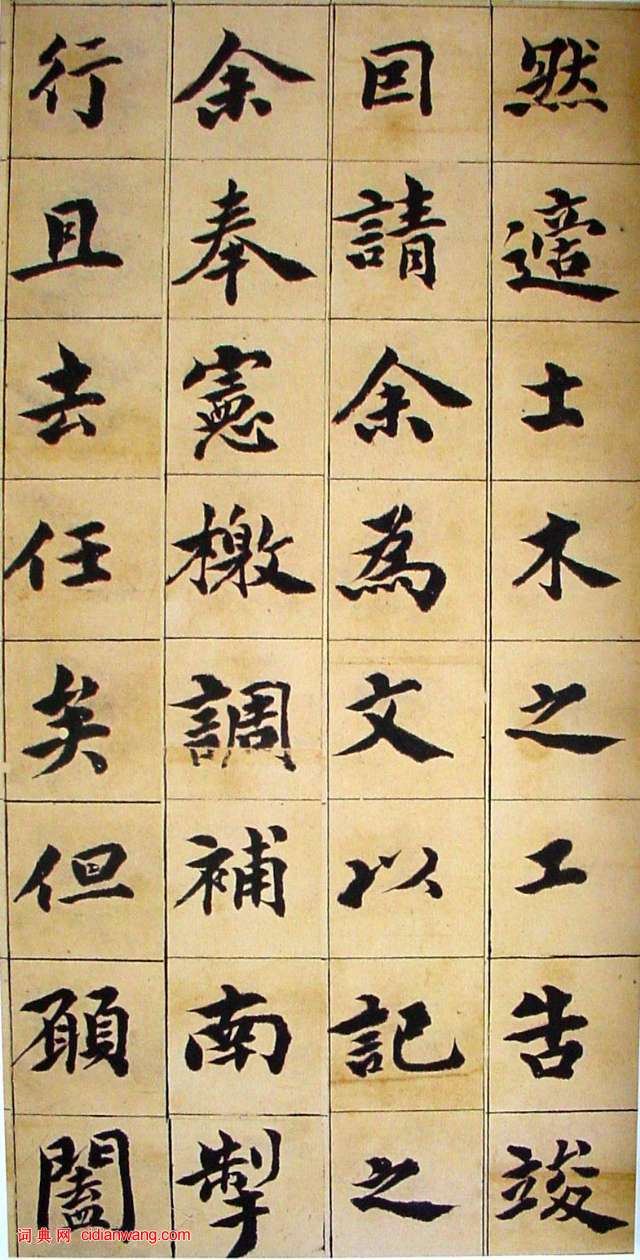 然適土木之工告竣
因請余為文以記之
余奉憲檄調補南掣
行且去任矣但願闔
词典网 cidianwang.com